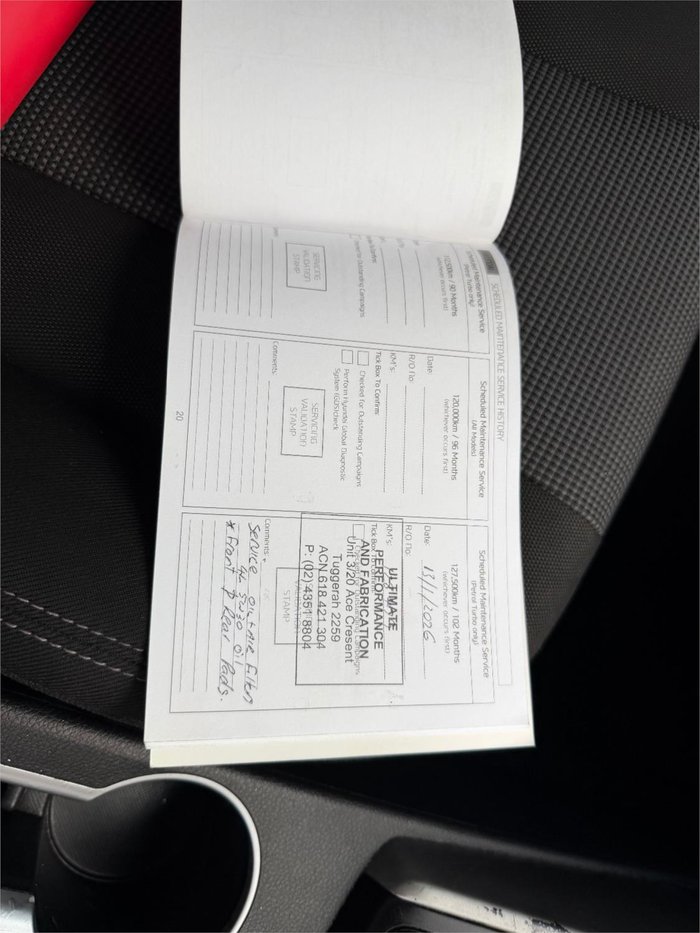 SCHEDULED MAINTENANCE SERVICE HISTORY
Scheduled Maintenance Service
(Petrol Turbo only)
/ 90 Months
(whichever occurs first)
Checked for Outstanding Campaigns
SERVICING
VALIDATION
STAMP
Scheduled Maintenance Service
(All Models)
120,000km / 96 Months
(whichever occurs first)
Date:
R/O No:
KM's:
Tick Box To Confirm:
Checked for Outstanding Campaigns
Perform Hyundai Global Diagnostic
System (GDS)check
SERVICING
VALIDATION
STAMP
Comments:
20
Scheduled Maintenance Service
(Petrol Turbo only)
127,500km / 102 Months
(whichever occurs first)
Date: 13/1/2026
R/O No:
KM's:
Tick Box To
ULTIMATE
PERFORMANCE
AND FABRICATION
Unit 3/20 Ace Cresent
Tuggerah 2259
ACN 618 421 304
P: (02) 4351 8804
STAMP
Comments:
Service oil + Air Filter
4L 5W30 oil
* Front & Rear Pads.